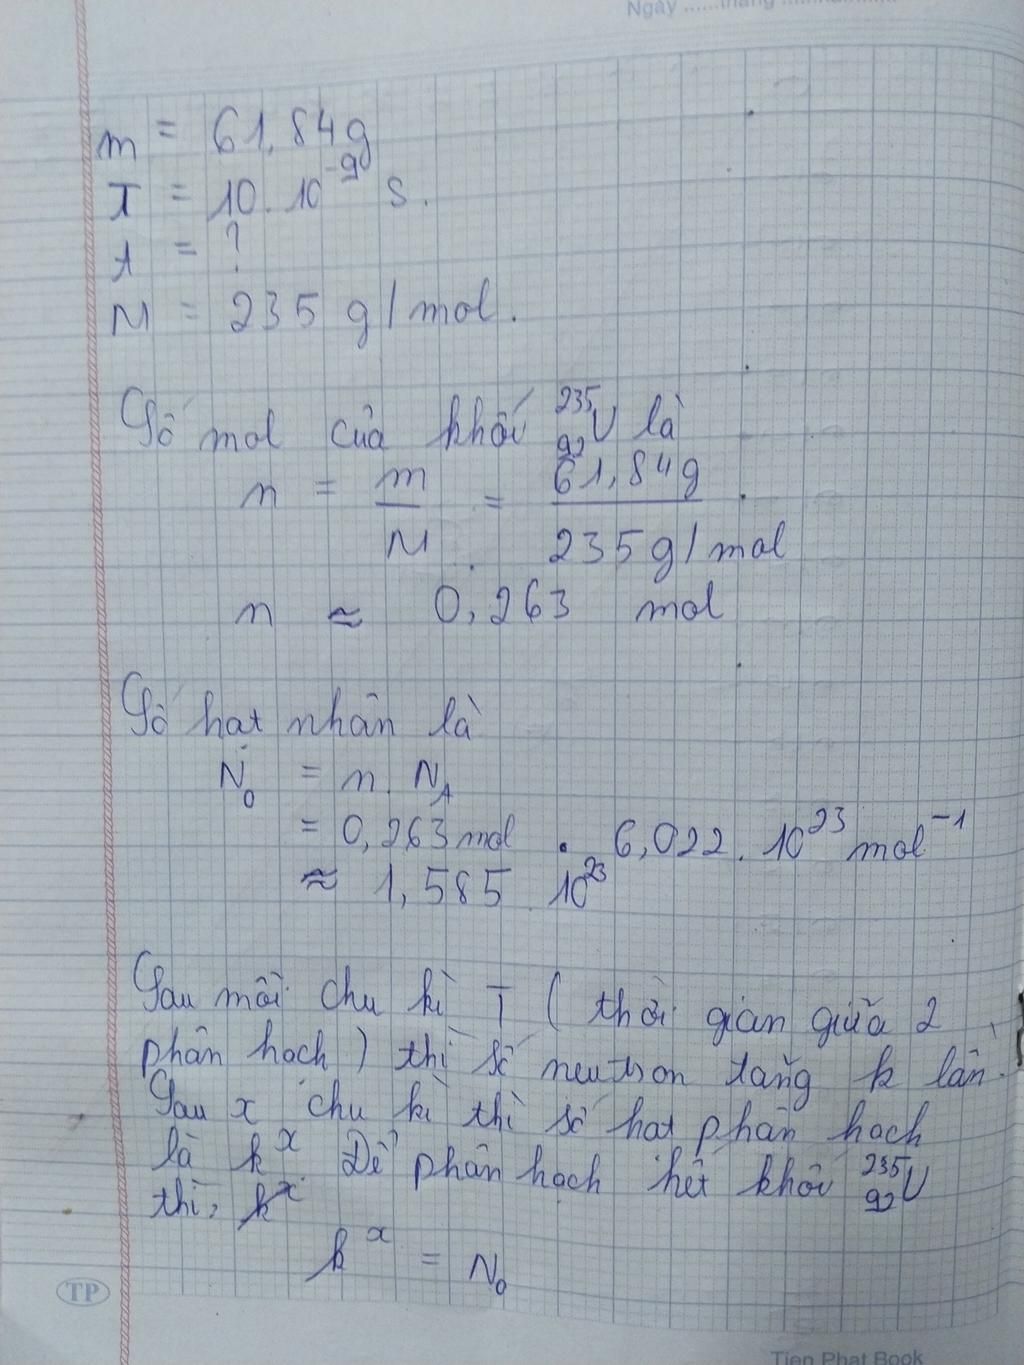 Ngày ......tháng
m = 61,84g
T = 10. 10⁻⁹ s.
t = ?
M = 235 g/mol.
Số mol của khối ²³⁵₉₂U là
n = m/M = 61,84g / 235g/mol
n ≈ 0,263 mol
Số hạt nhân là
N₀ = n. N_A
= 0,263mol . 6,022. 10²³ mol⁻¹
≈ 1,585 10²³
Sau mỗi chu kì T ( thời gian giữa 2
phân hạch ) thì số neutron tăng k lần.
Sau x chu kì thì số hạt phân hạch
là kˣ. Để phân hạch hết khối ²³⁵₉₂U
thì,
kˣ = N₀
TP
Tien Phat Book